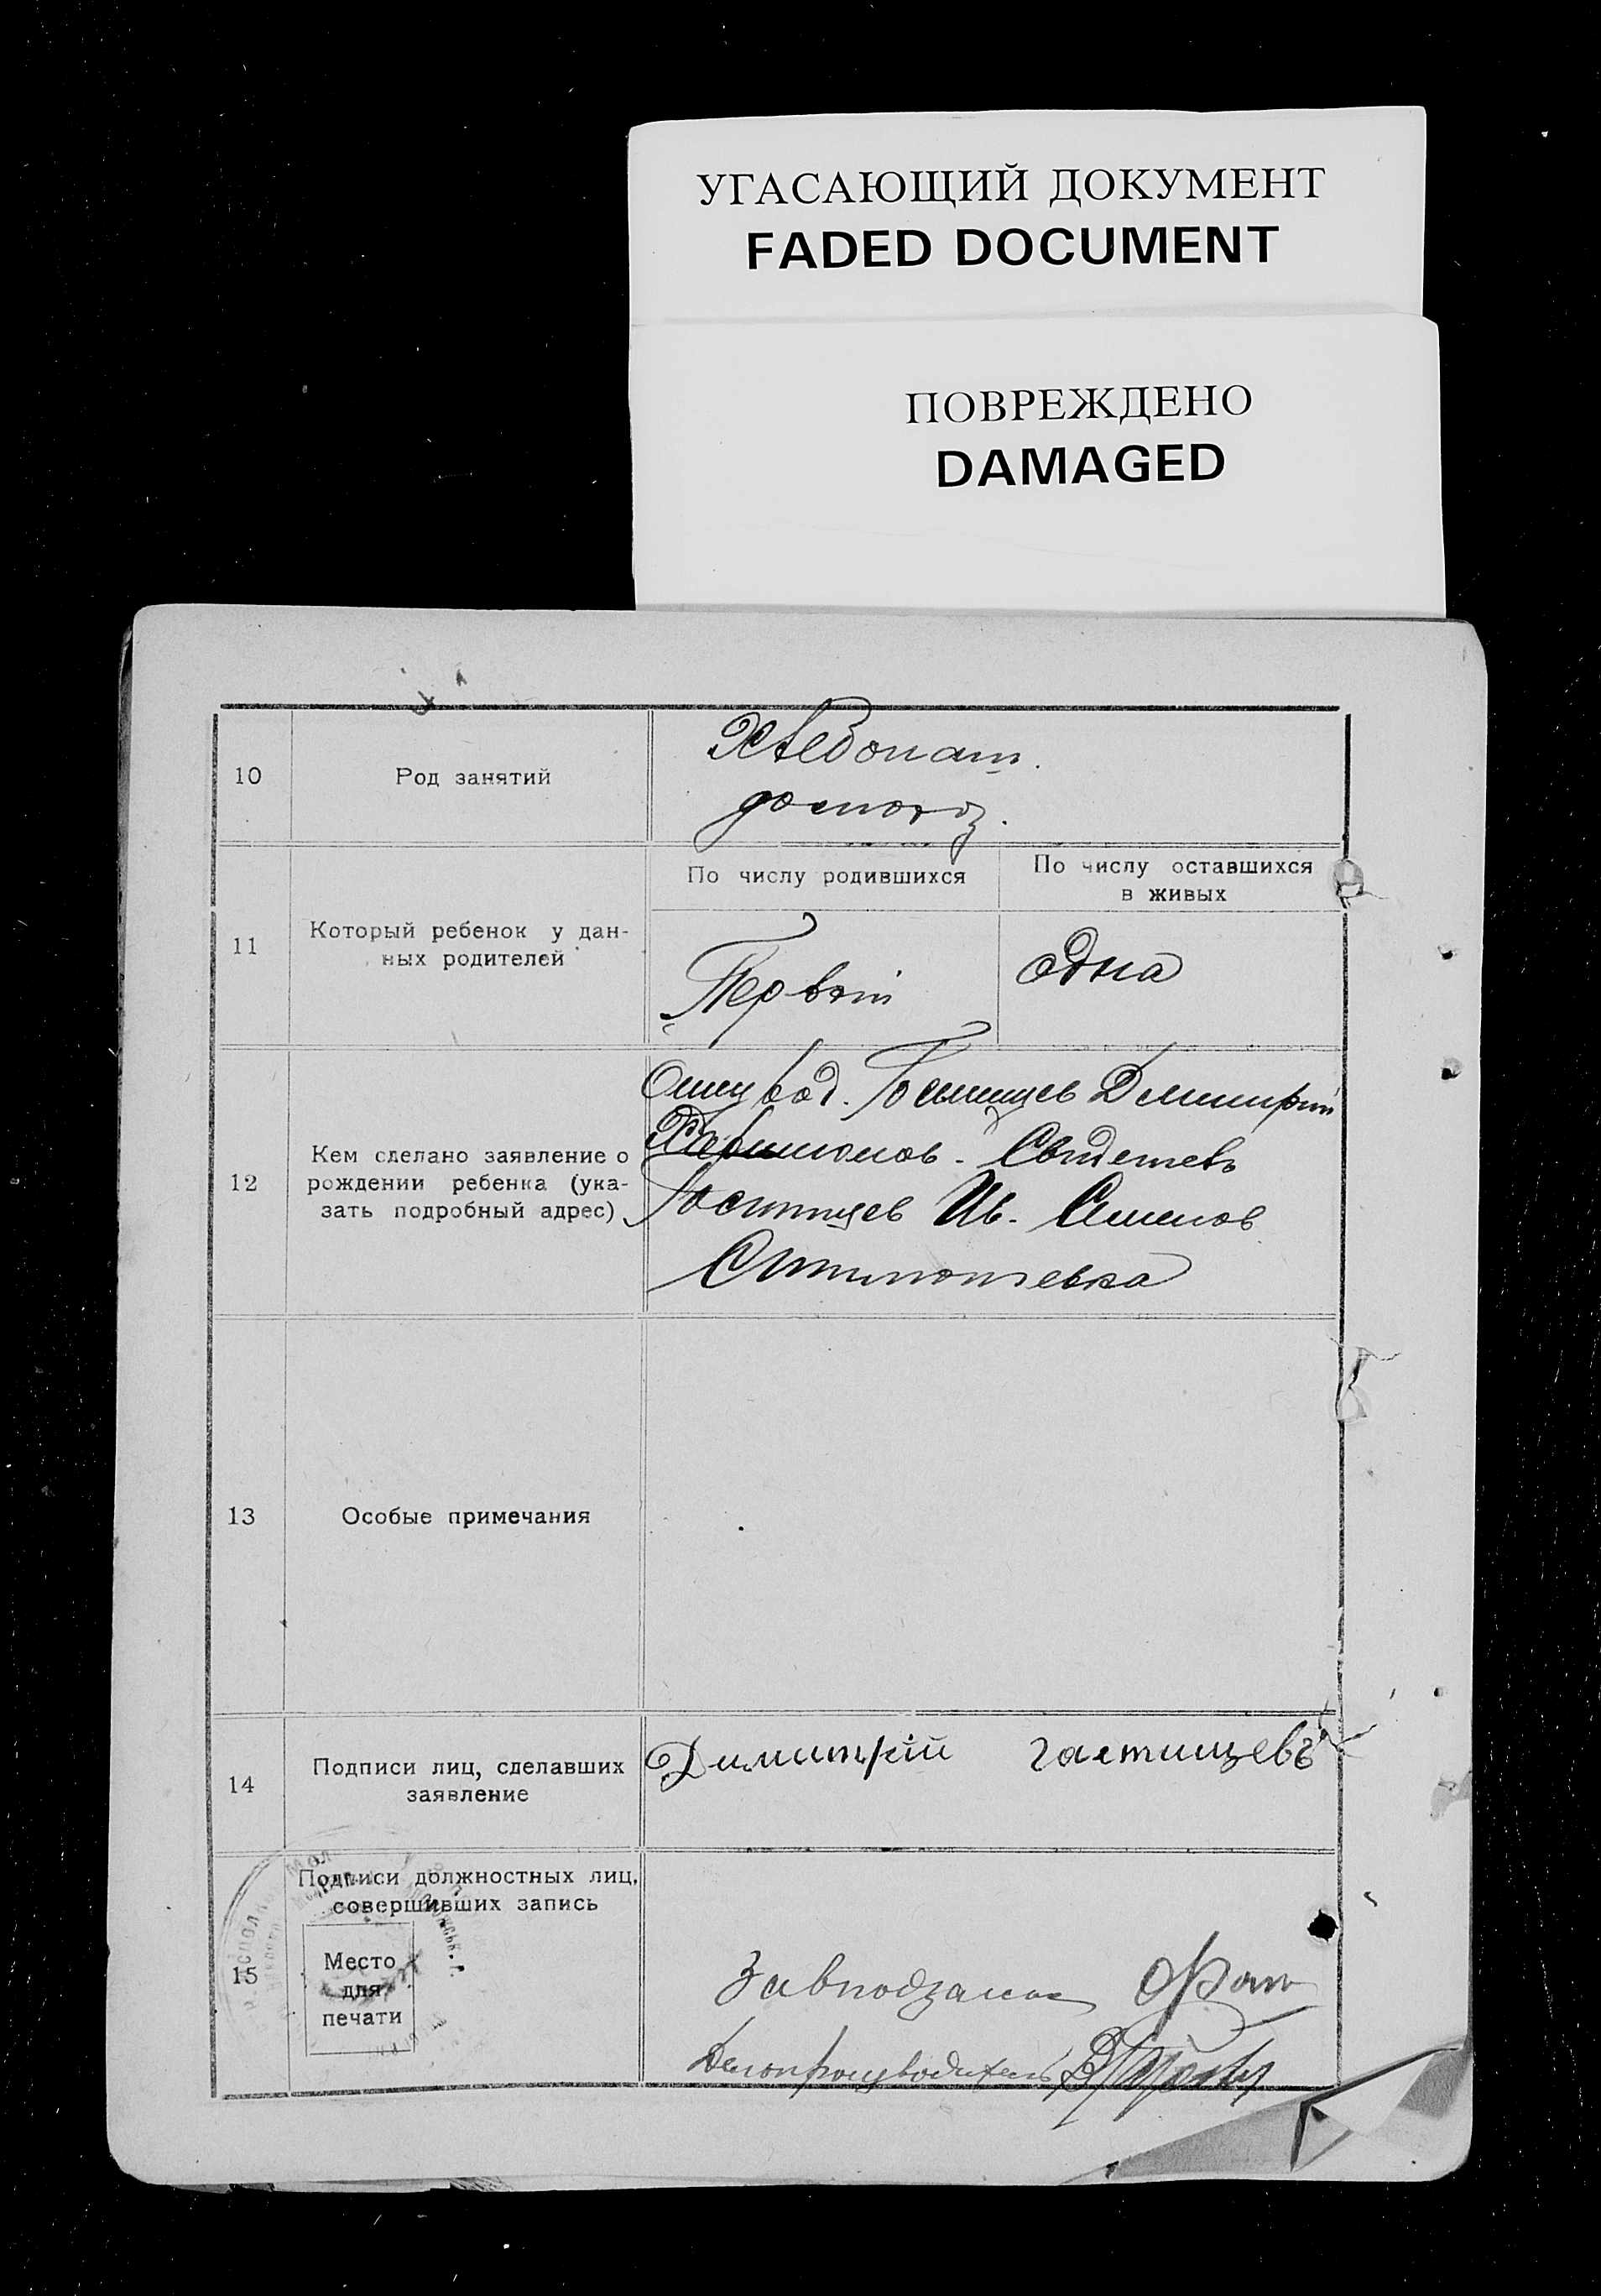 УГАСАЮЩИЙ ДОКУМЕНТ
FADED DOCUMENT
ПОВРЕЖДЕНО
DAMAGED
10
Род занятий
Хлебопаш.
11
Который ребенок у дан-
ных родителей
По числу родившихся
По числу оставшихся
в живых
Первый
одна
12
Кем сделано заявление о
рождении ребенка (ука-
зать подробный адрес)
Отец Димитрий
Свидетель
Ив.
13
Особые примечания
14
Подписи лиц, сделавших
заявление
Димитрій гостищевъ
15
Подписи должностных лиц,
совершивших запись
Место
для
печати
Завподзагсом
Делопроизводитель